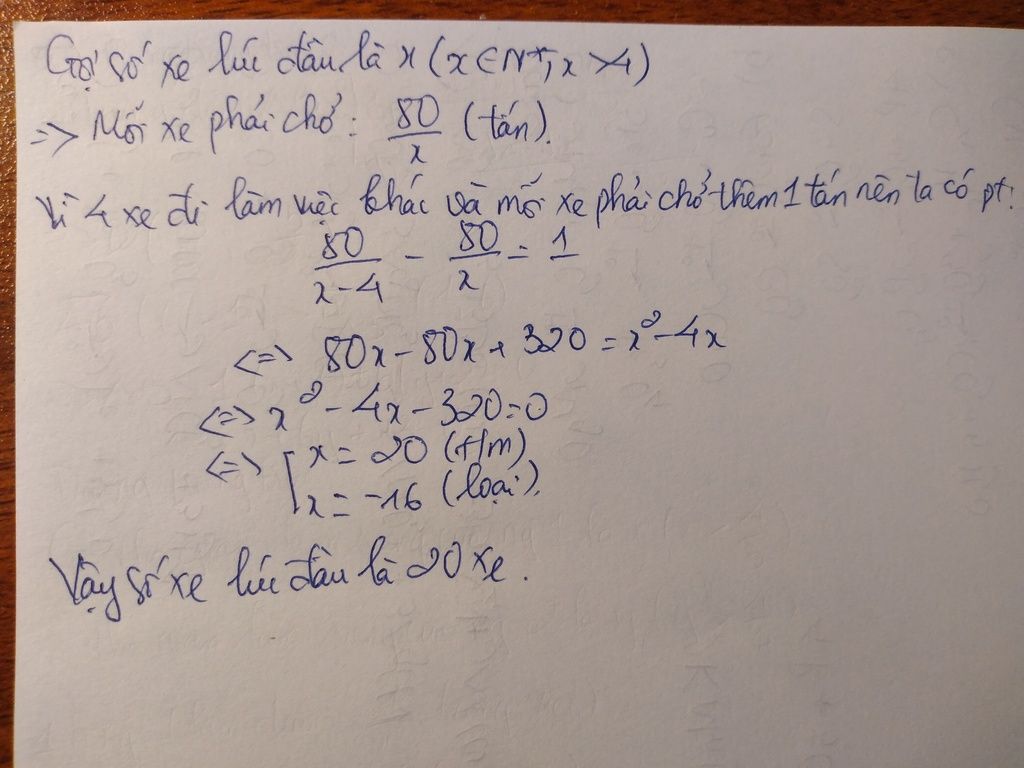 Gọi số xe lúc đầu là x (x ∈ N*; x > 4)
=> Mỗi xe phải chở: 80/x (tấn).
Vì 4 xe đi làm việc khác và mỗi xe phải chở thêm 1 tấn nên ta có pt:
80/(x-4) - 80/x = 1
<=> 80x - 80x + 320 = x² - 4x
<=> x² - 4x - 320 = 0
<=> [ x = 20 (t/m)
x = -16 (loại).
Vậy số xe lúc đầu là 20 xe.